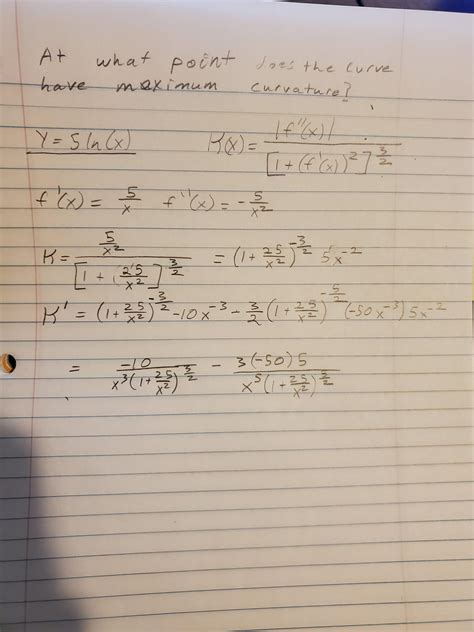 At what point does the curve
have maximum curvature?
Y = 5 ln(x)    K(x) = |f''(x)| / [1 + (f'(x))²]^(3/2)
f'(x) = 5/x    f''(x) = -5/x²
K = (5/x²) / [1 + (25/x²)]^(3/2) = (1 + 25/x²)^(-3/2) 5x^-2
K' = (1 + 25/x²)^(-3/2) -10x^-3 - 3/2 (1 + 25/x²)^(-5/2) (-50x^-3) 5x^-2
= -10 / x³(1 + 25/x²)^(3/2) - 3(-50)5 / x⁵(1 + 25/x²)